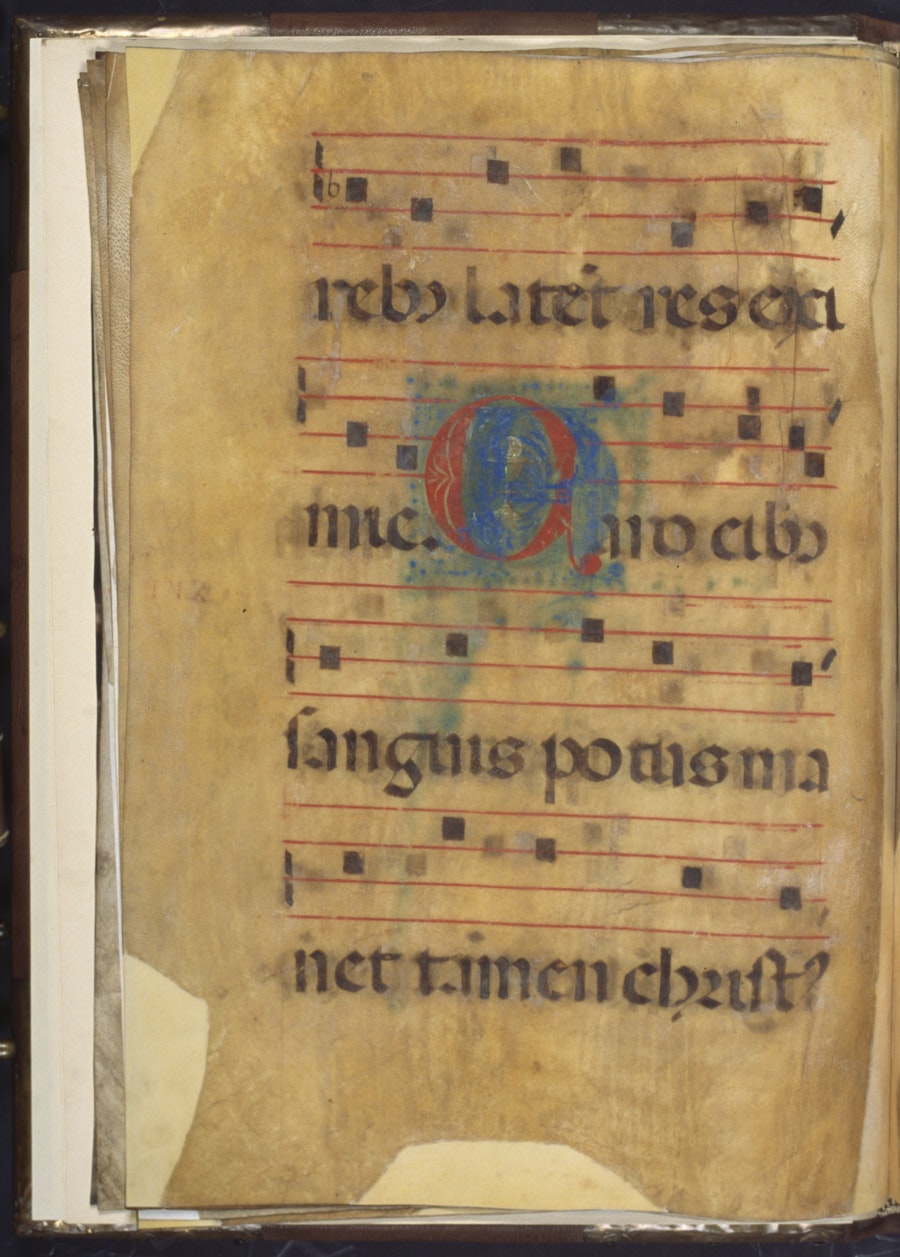 b
rebꝰ latēt res exi
mie. Caro cibꝰ
ſanguis potus ma
net tamen chriſtꝰ